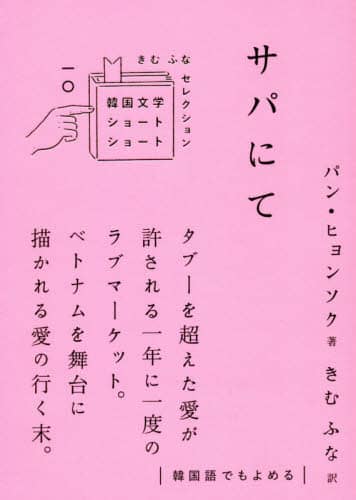 サパにて
パン・ヒョンソク 著 きむ ふな 訳
きむ ふな セレクション
韓国文学
ショート
ショート
一〇
タブーを超えた愛が
許される一年に一度の
ラブマーケット。
ベトナムを舞台に
描かれる愛の行く末。
韓国語でもよめる